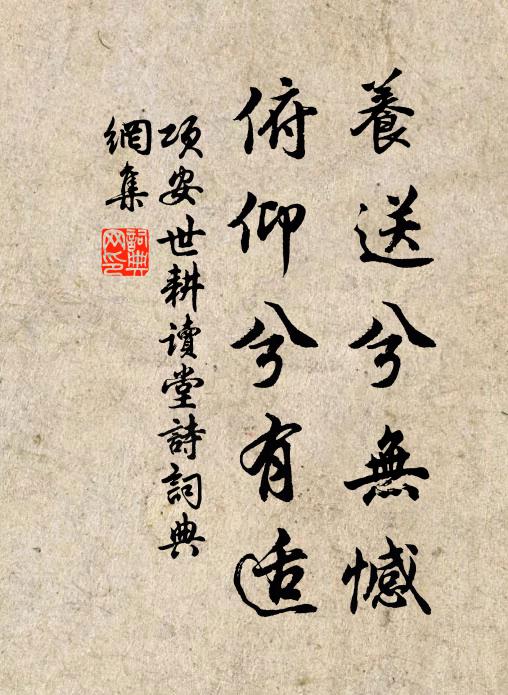 養送兮無憾
俯仰兮有适
項安世耕讀堂詩詞典
網集
詞典
网印